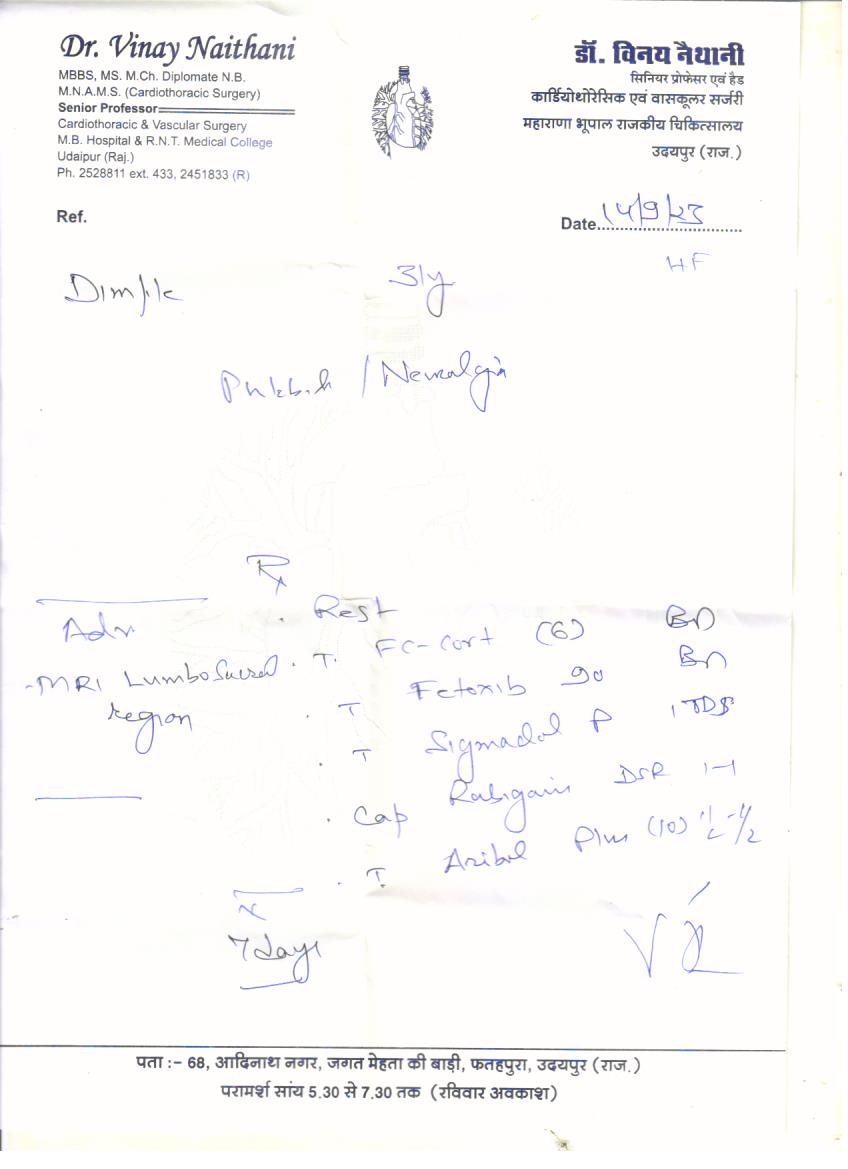 Dr. Vinay Naithani
MBBS, MS. M.Ch. Diplomate N.B.
M.N.A.M.S. (Cardiothoracic Surgery)
Senior Professor
Cardiothoracic & Vascular Surgery
M.B. Hospital & R.N.T. Medical College
Udaipur (Raj.)
Ph. 2528811 ext. 433, 2451833 (R)
डॉ. विनय नैथानी
सिनियर प्रोफेसर एवं हैड
कार्डियोथोरेसिक एवं वासकूलर सर्जरी
महाराणा भूपाल राजकीय चिकित्सालय
उदयपुर (राज.)
Ref.
Date 14/9/23
HF
Dimple 31y
/ Neuralgia
Rx
Adv.
- MRI Lumbosacral region
. Rest
. T. FC-Cort (6) BD
. T Etoxib 90 BD
. T Sigmadol P 1 TDS
. Cap Rabigain DSR 1-1
. T. Plus (10) 1/2-1/2
x
7 days
पता :- 68, आदिनाथ नगर, जगत मेहता की बाड़ी, फतहपुरा, उदयपुर (राज.)
परामर्श सांय 5.30 से 7.30 तक (रविवार अवकाश)